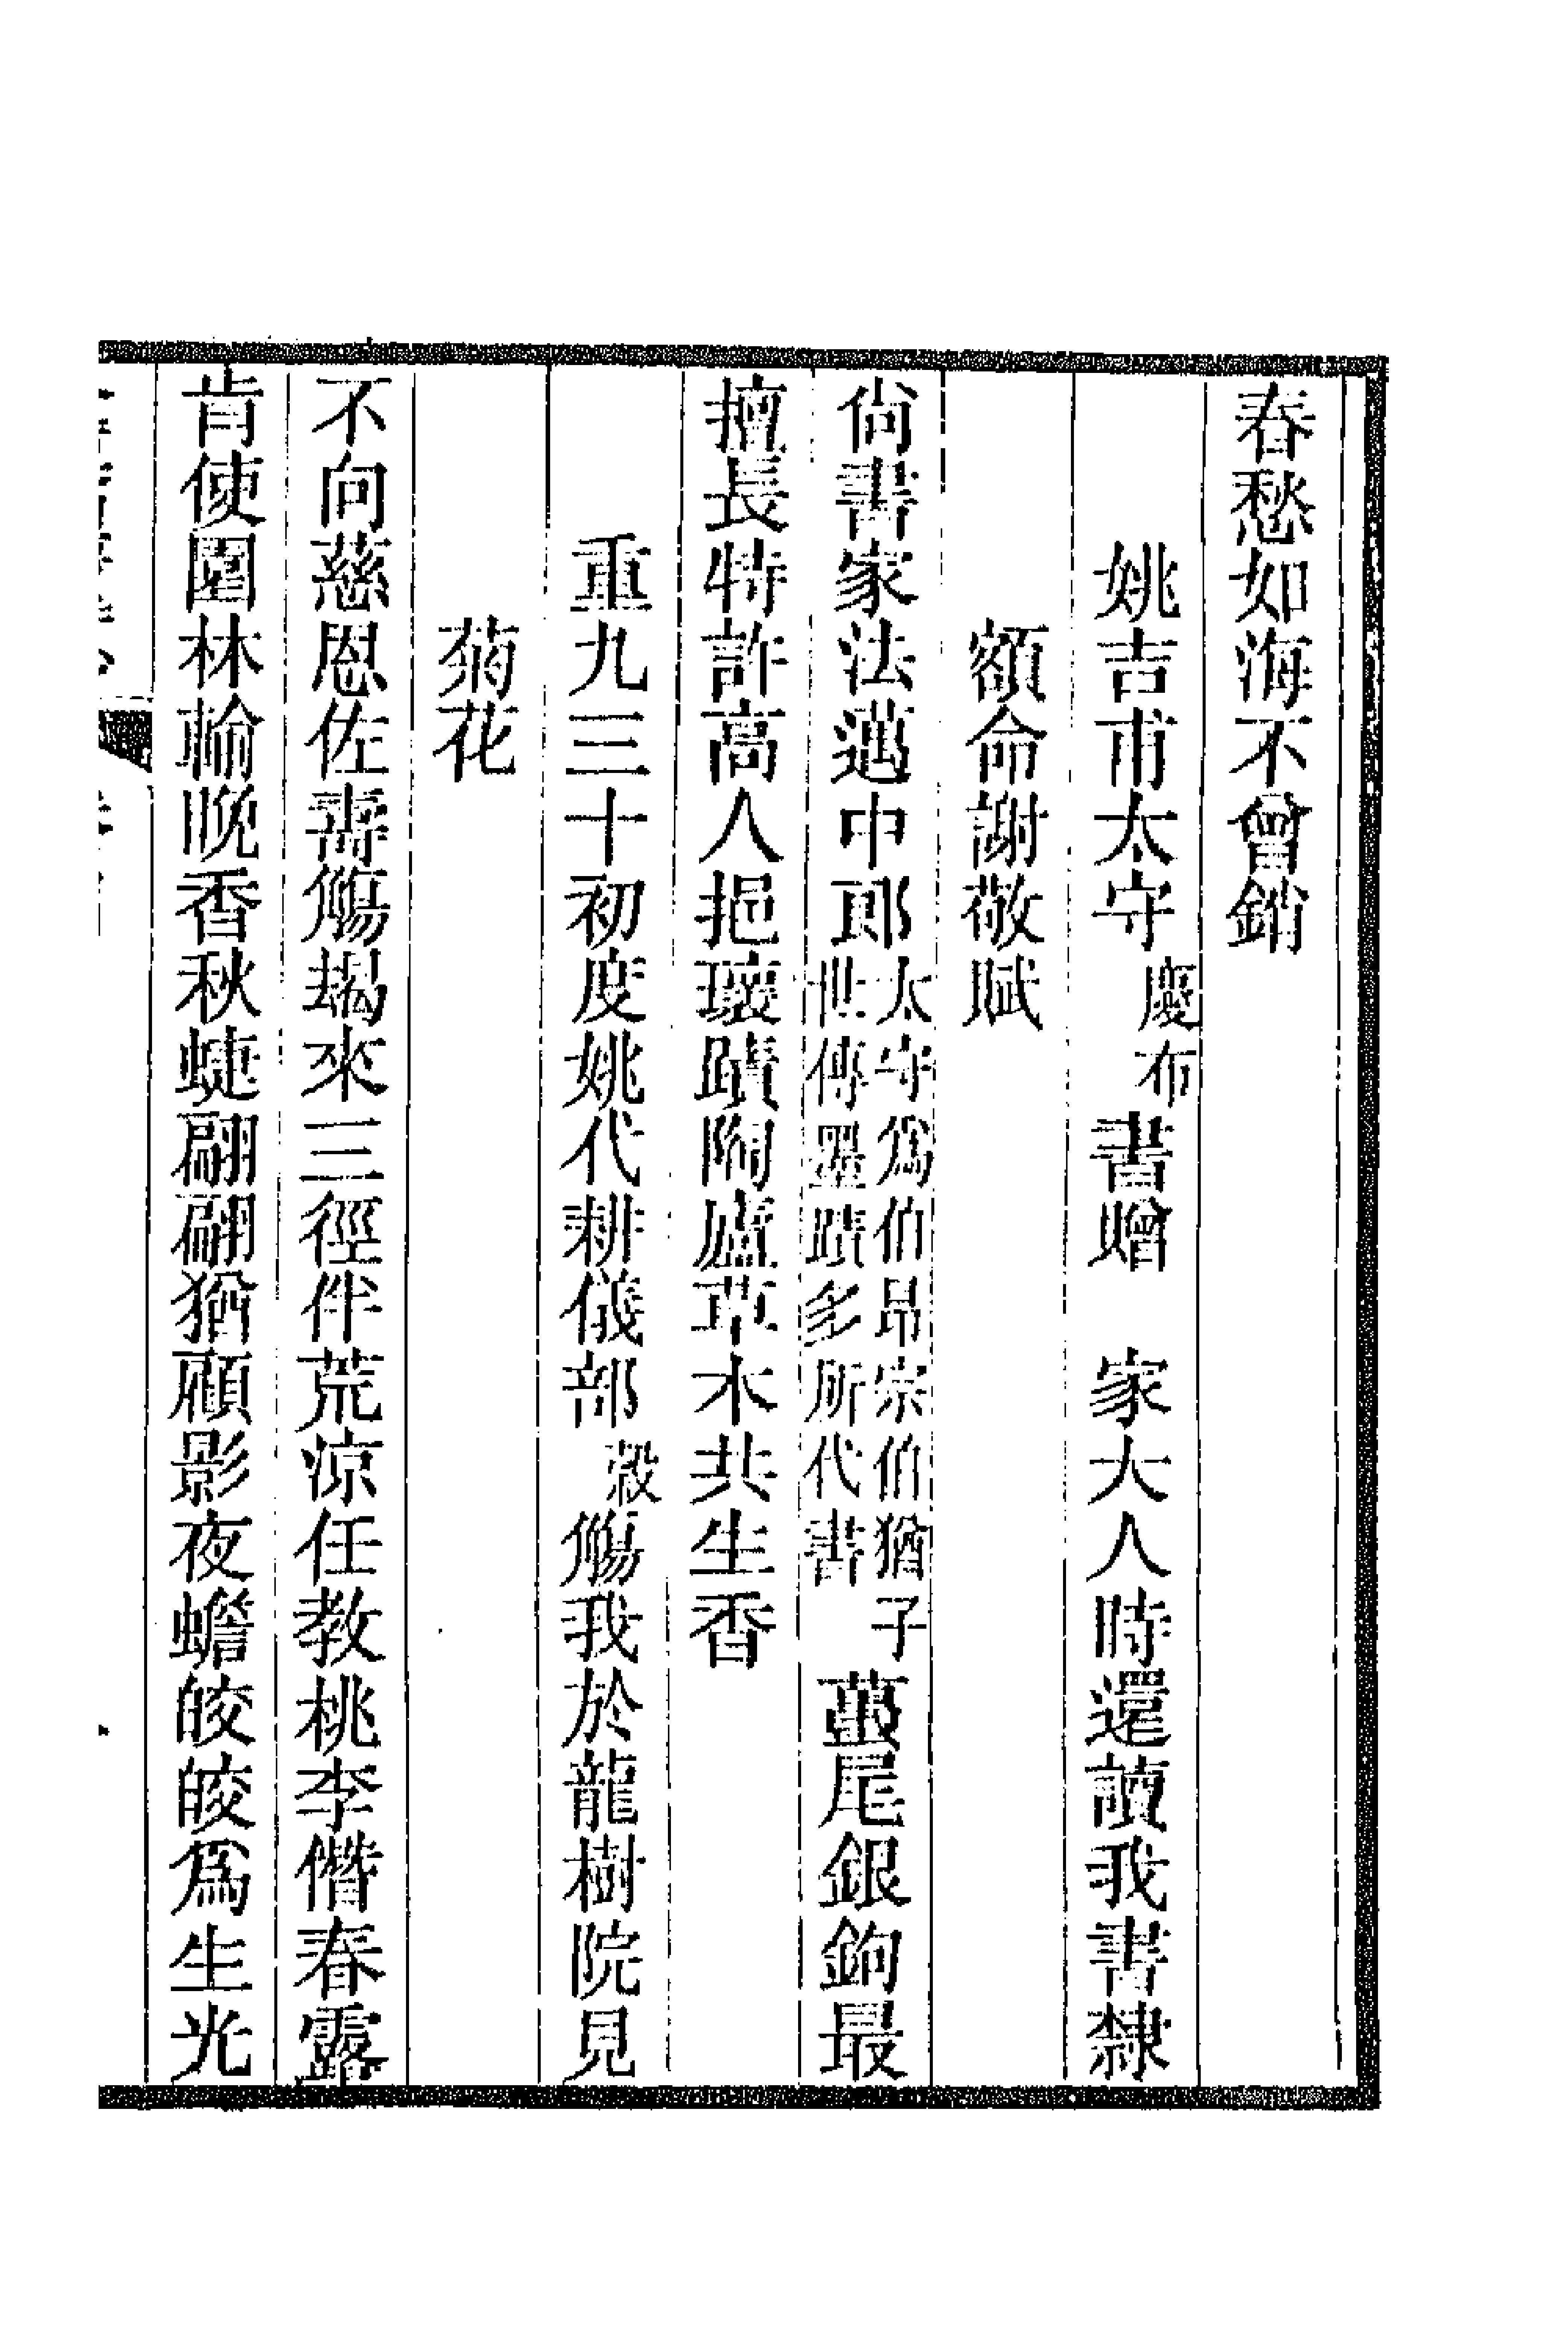 春愁如海不曾銷
姚吉甫太守慶布書贈　家大人時還讀我書隸
額命謝敬賦
尙書家法邁中郎太守爲伯昂宗伯猶子世傳墨蹟多所代書蠆尾銀鉤最
擅長特許高人挹瓌蹟陶廬草木共生香
重九三十初度姚代耕儀部穀觴我於龍樹院見
菊花
不向慈恩佐壽觴朅來三徑伴荒涼任教桃李僭春露
肯使園林輸晚香秋蜨翩翩猶顧影夜蟾皎皎爲生光